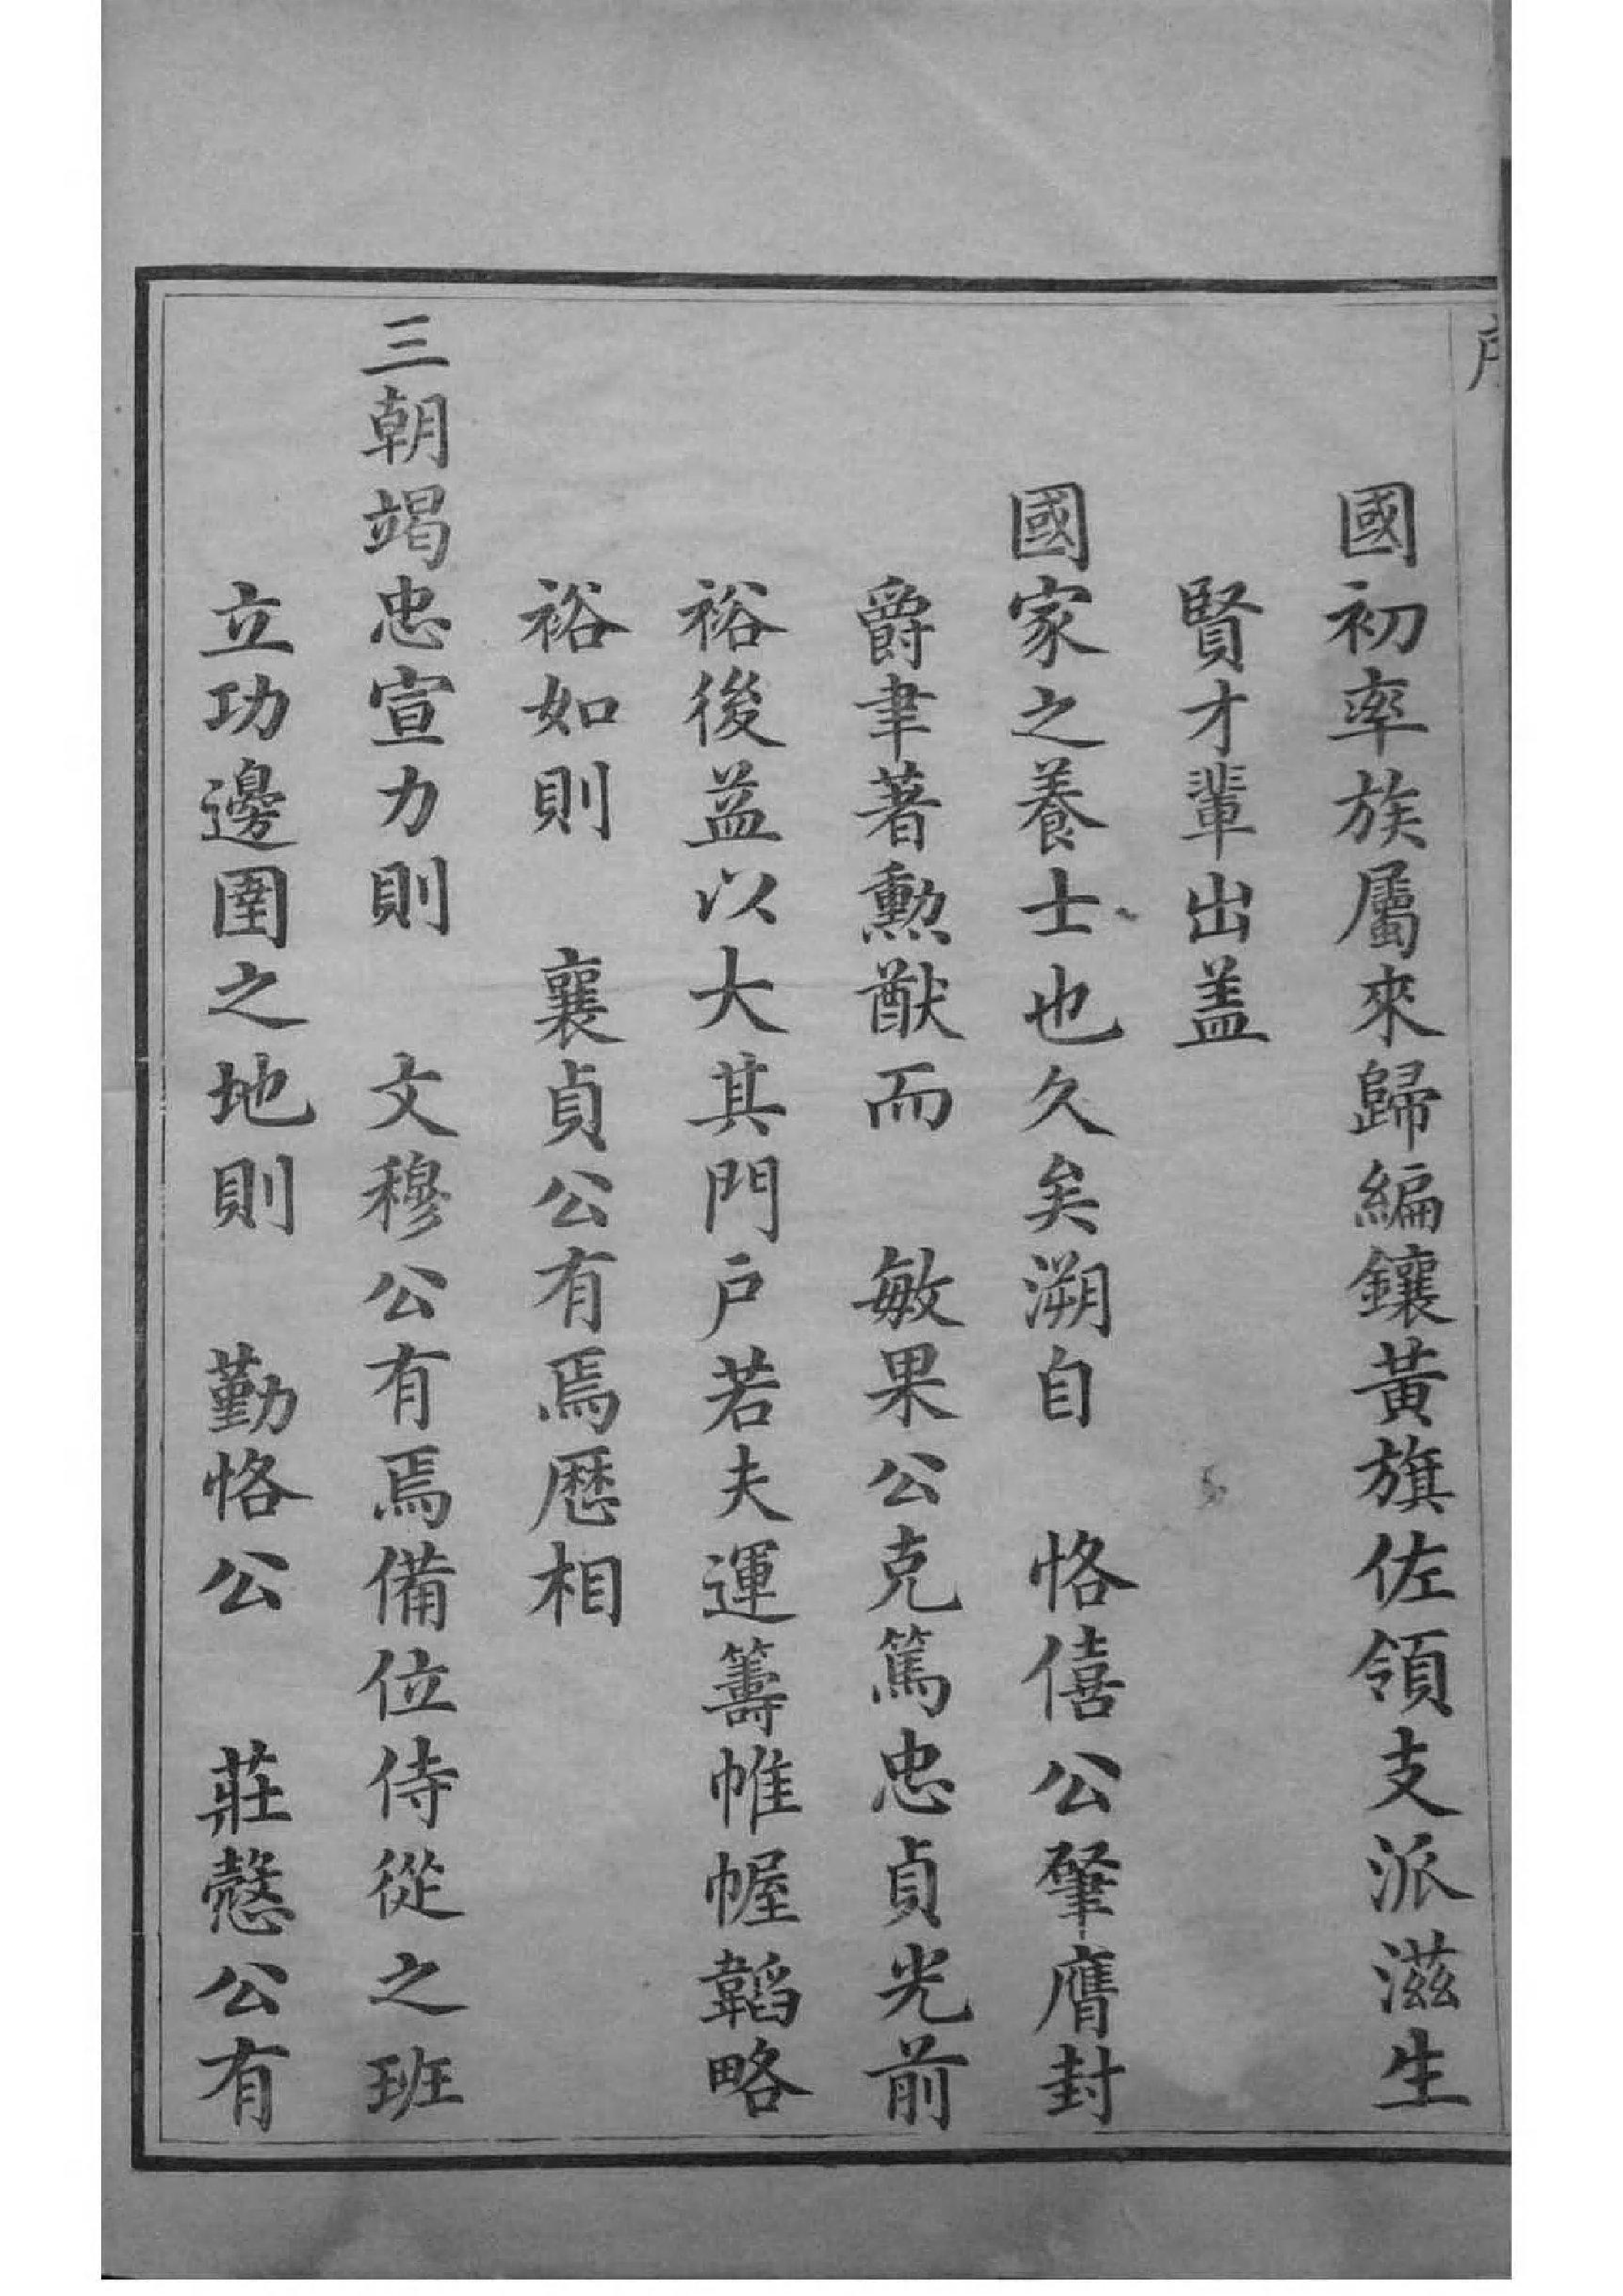 國初率族屬來歸編鑲黃旗佐領支派滋生
賢才輩出盖
國家之養士也久矣溯自　恪僖公肇膺封
爵聿著勲猷而　敏果公克篤忠貞光前
裕後益以大其門户若夫運籌帷幄韜略
裕如則　襄貞公有焉歷相
三朝竭忠宣力則　文穆公有焉備位侍從之班
立功邊圉之地則　勤恪公　莊慤公有